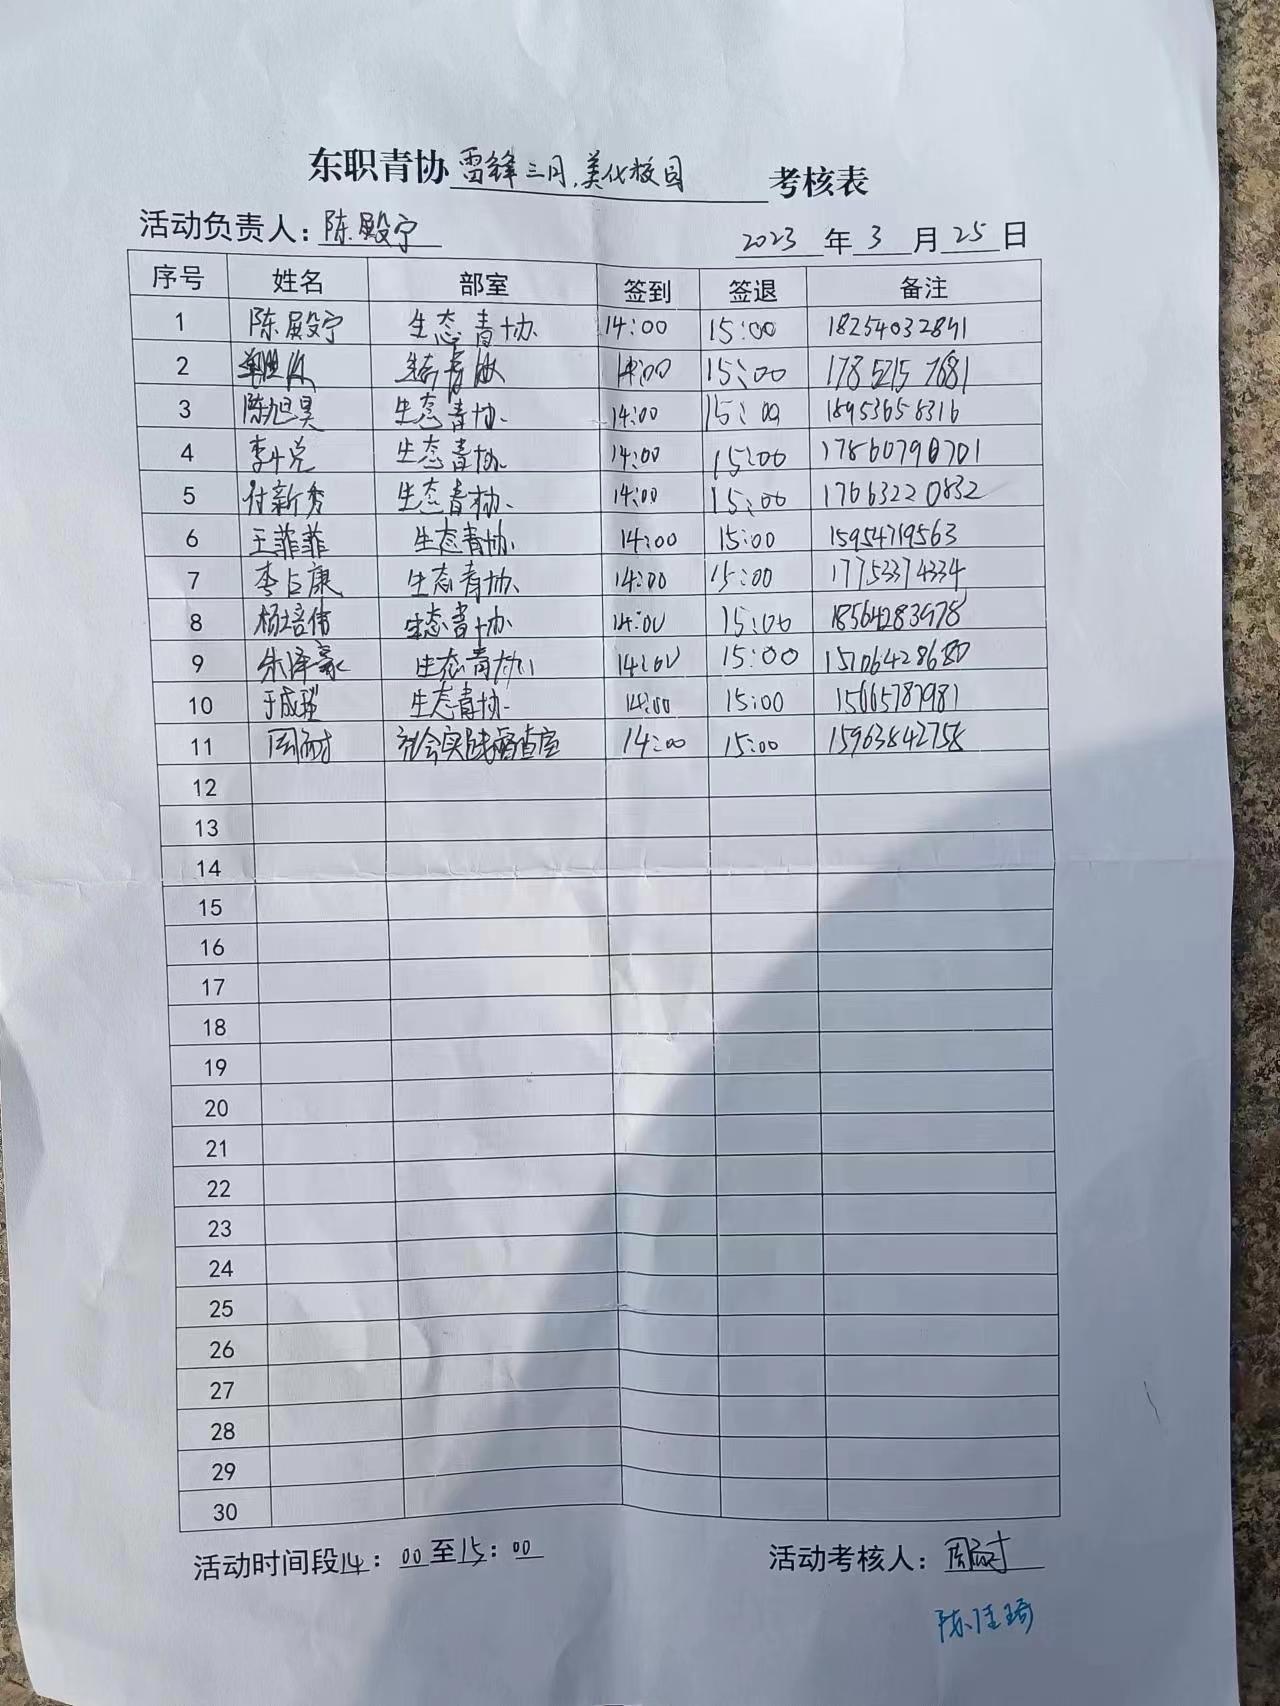 东职青协雷锋三月.美化校园考核表
活动负责人:陈殿宁 2023年3月25日
序号 姓名 部室 签到 签退 备注
1 陈殿宁 生态青协 14:00 15:00 18254032841
2 生态青协 14:00 15:00 17852157681
3 陈旭昊 生态青协. 14:00 15:00 18953658316
4 李 生态青协. 14:00 15:00
5 付新秀 生态青协. 14:00 15:00 17663220832
6 王菲菲 生态青协. 14:00 15:00 15954719563
7 李占康 生态青协. 14:00 15:00 17753374334
8 杨培伟 生态青协 14:00 15:00 18564283978
9 朱泽豪 生态青协 14:00 15:00 15706428680
10 于成 生态青协. 14:00 15:00 15665787981
11 周耐 社会实践督查室 14:00 15:00 15963842758
12
13
14
15
16
17
18
19
20
21
22
23
24
25
26
27
28
29
30
活动时间段14:00至15:00 活动考核人:周耐
陈佳琦